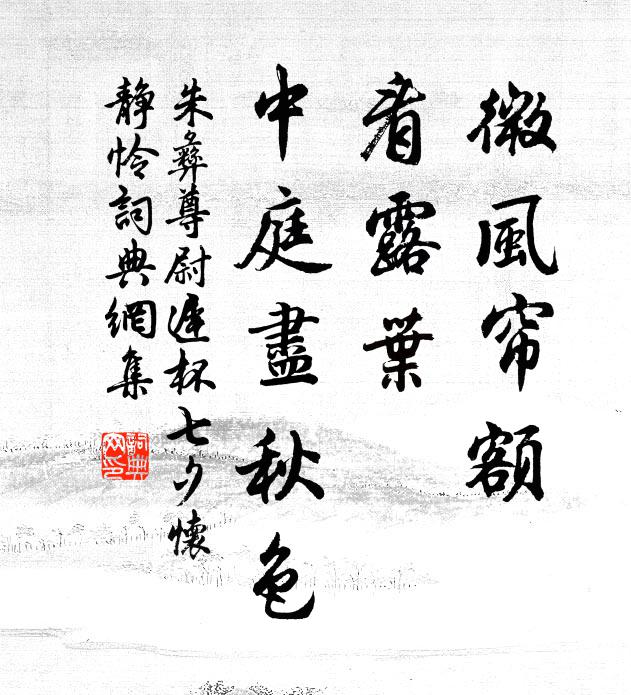 微風帘額
看露葉
中庭盡秋色
朱彝尊尉遲杯七夕懷
静怜詞典網集
詞典
网印